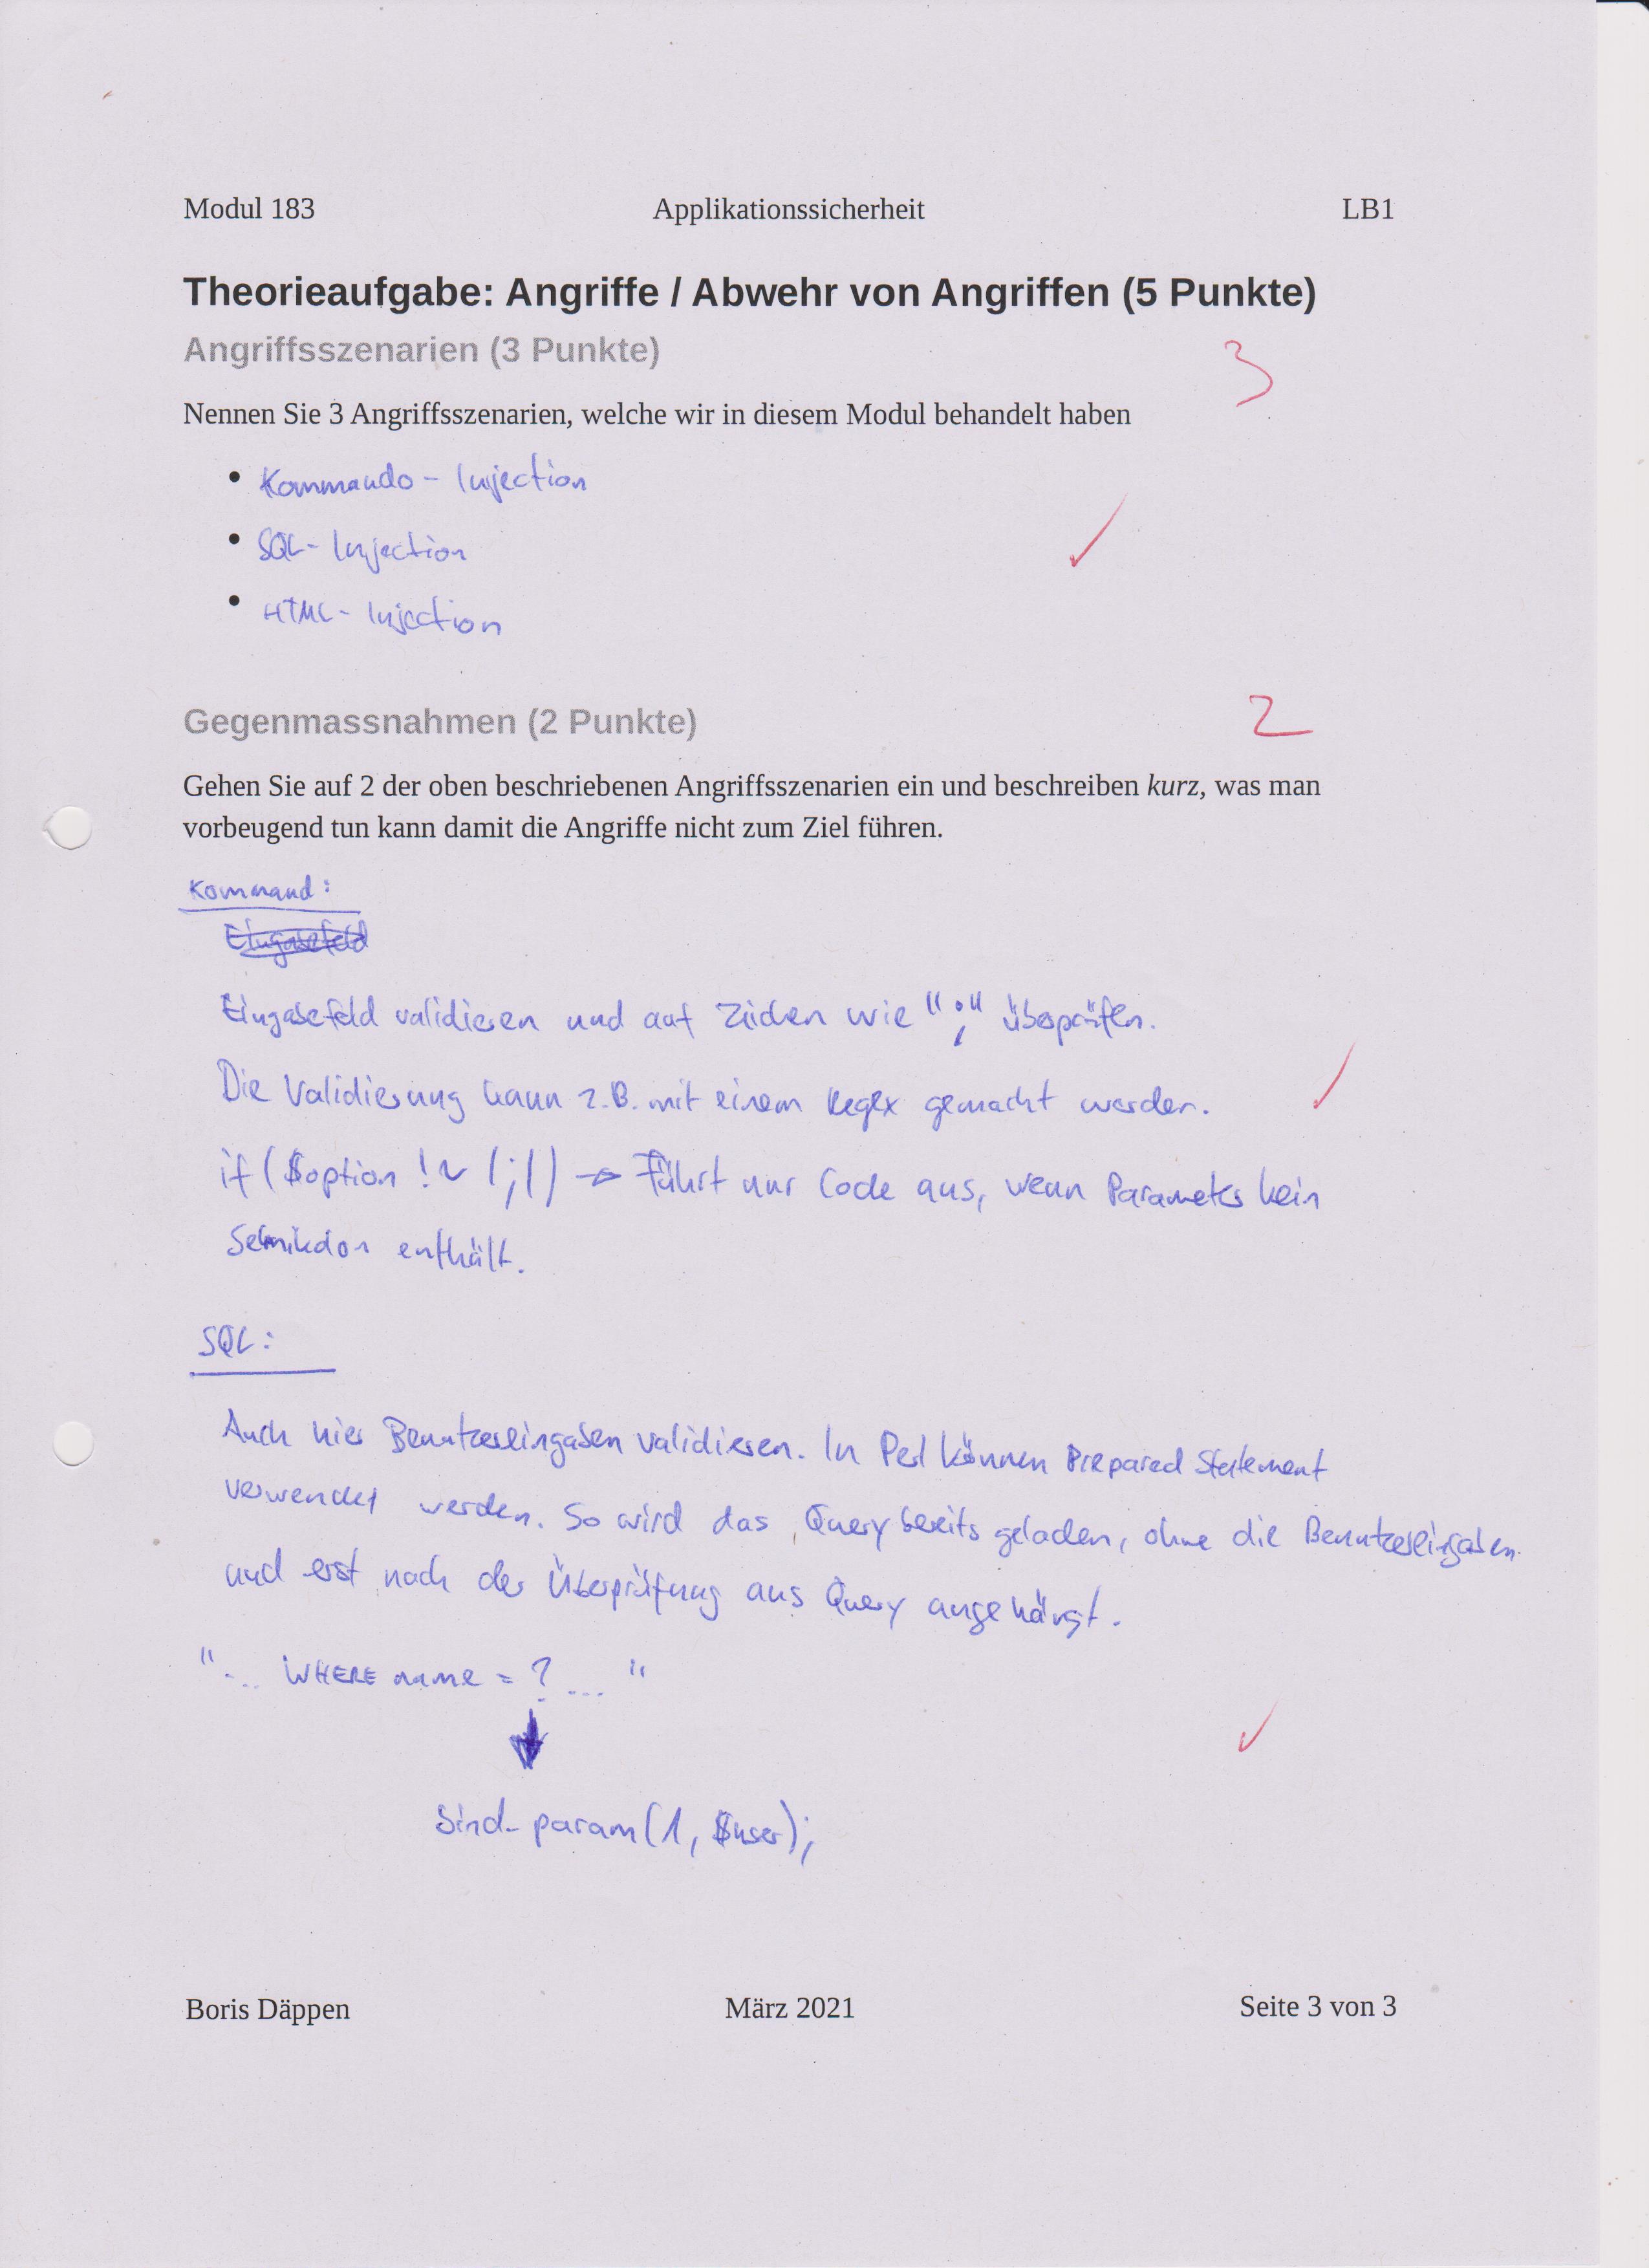 Modul 183 Applikationssicherheit LB1
Theorieaufgabe: Angriffe / Abwehr von Angriffen (5 Punkte)
Angriffsszenarien (3 Punkte) 3
Nennen Sie 3 Angriffsszenarien, welche wir in diesem Modul behandelt haben
• Kommando - Injection
• SQL - Injection
• HTML - Injection
Gegenmassnahmen (2 Punkte) 2
Gehen Sie auf 2 der oben beschriebenen Angriffsszenarien ein und beschreiben kurz, was man
vorbeugend tun kann damit die Angriffe nicht zum Ziel führen.
Kommand:
Eingabefeld
Eingabefeld validieren und auf Zeichen wie ";" überprüfen.
Die Validierung kann z.B. mit einem Regex gemacht werden.
if ($option !~ /;/) → Führt nur Code aus, wenn Parameter kein
enthält.
SQL:
Auch hier Benutzereingaben validieren. In Perl können Prepared Statement
verwendet werden. So wird das Query bereits geladen, ohne die Benutzereingaben
und erst nach der Überprüfung ans Query angehängt.
"... WHERE name = ? ... "
bind_param(1, $user);
Boris Däppen März 2021 Seite 3 von 3